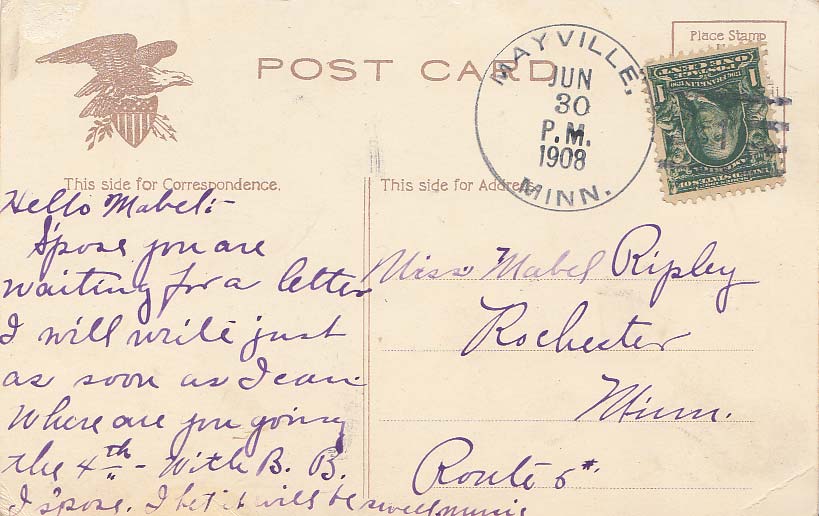 POST CARD
Place Stamp
MAYVILLE,
JUN
30
P.M.
1908
MINN.
ONE CENT
1 1
This side for Correspondence.
This side for Address
Hello Mabel:-
S'pose you are
waiting for a letter
I will write just
as soon as I can.
Where are you going
the 4th - With B. B.
I s'pose. I bet it will be sweell music
Miss Mabel Ripley
Rochester
Minn.
Route 5#.